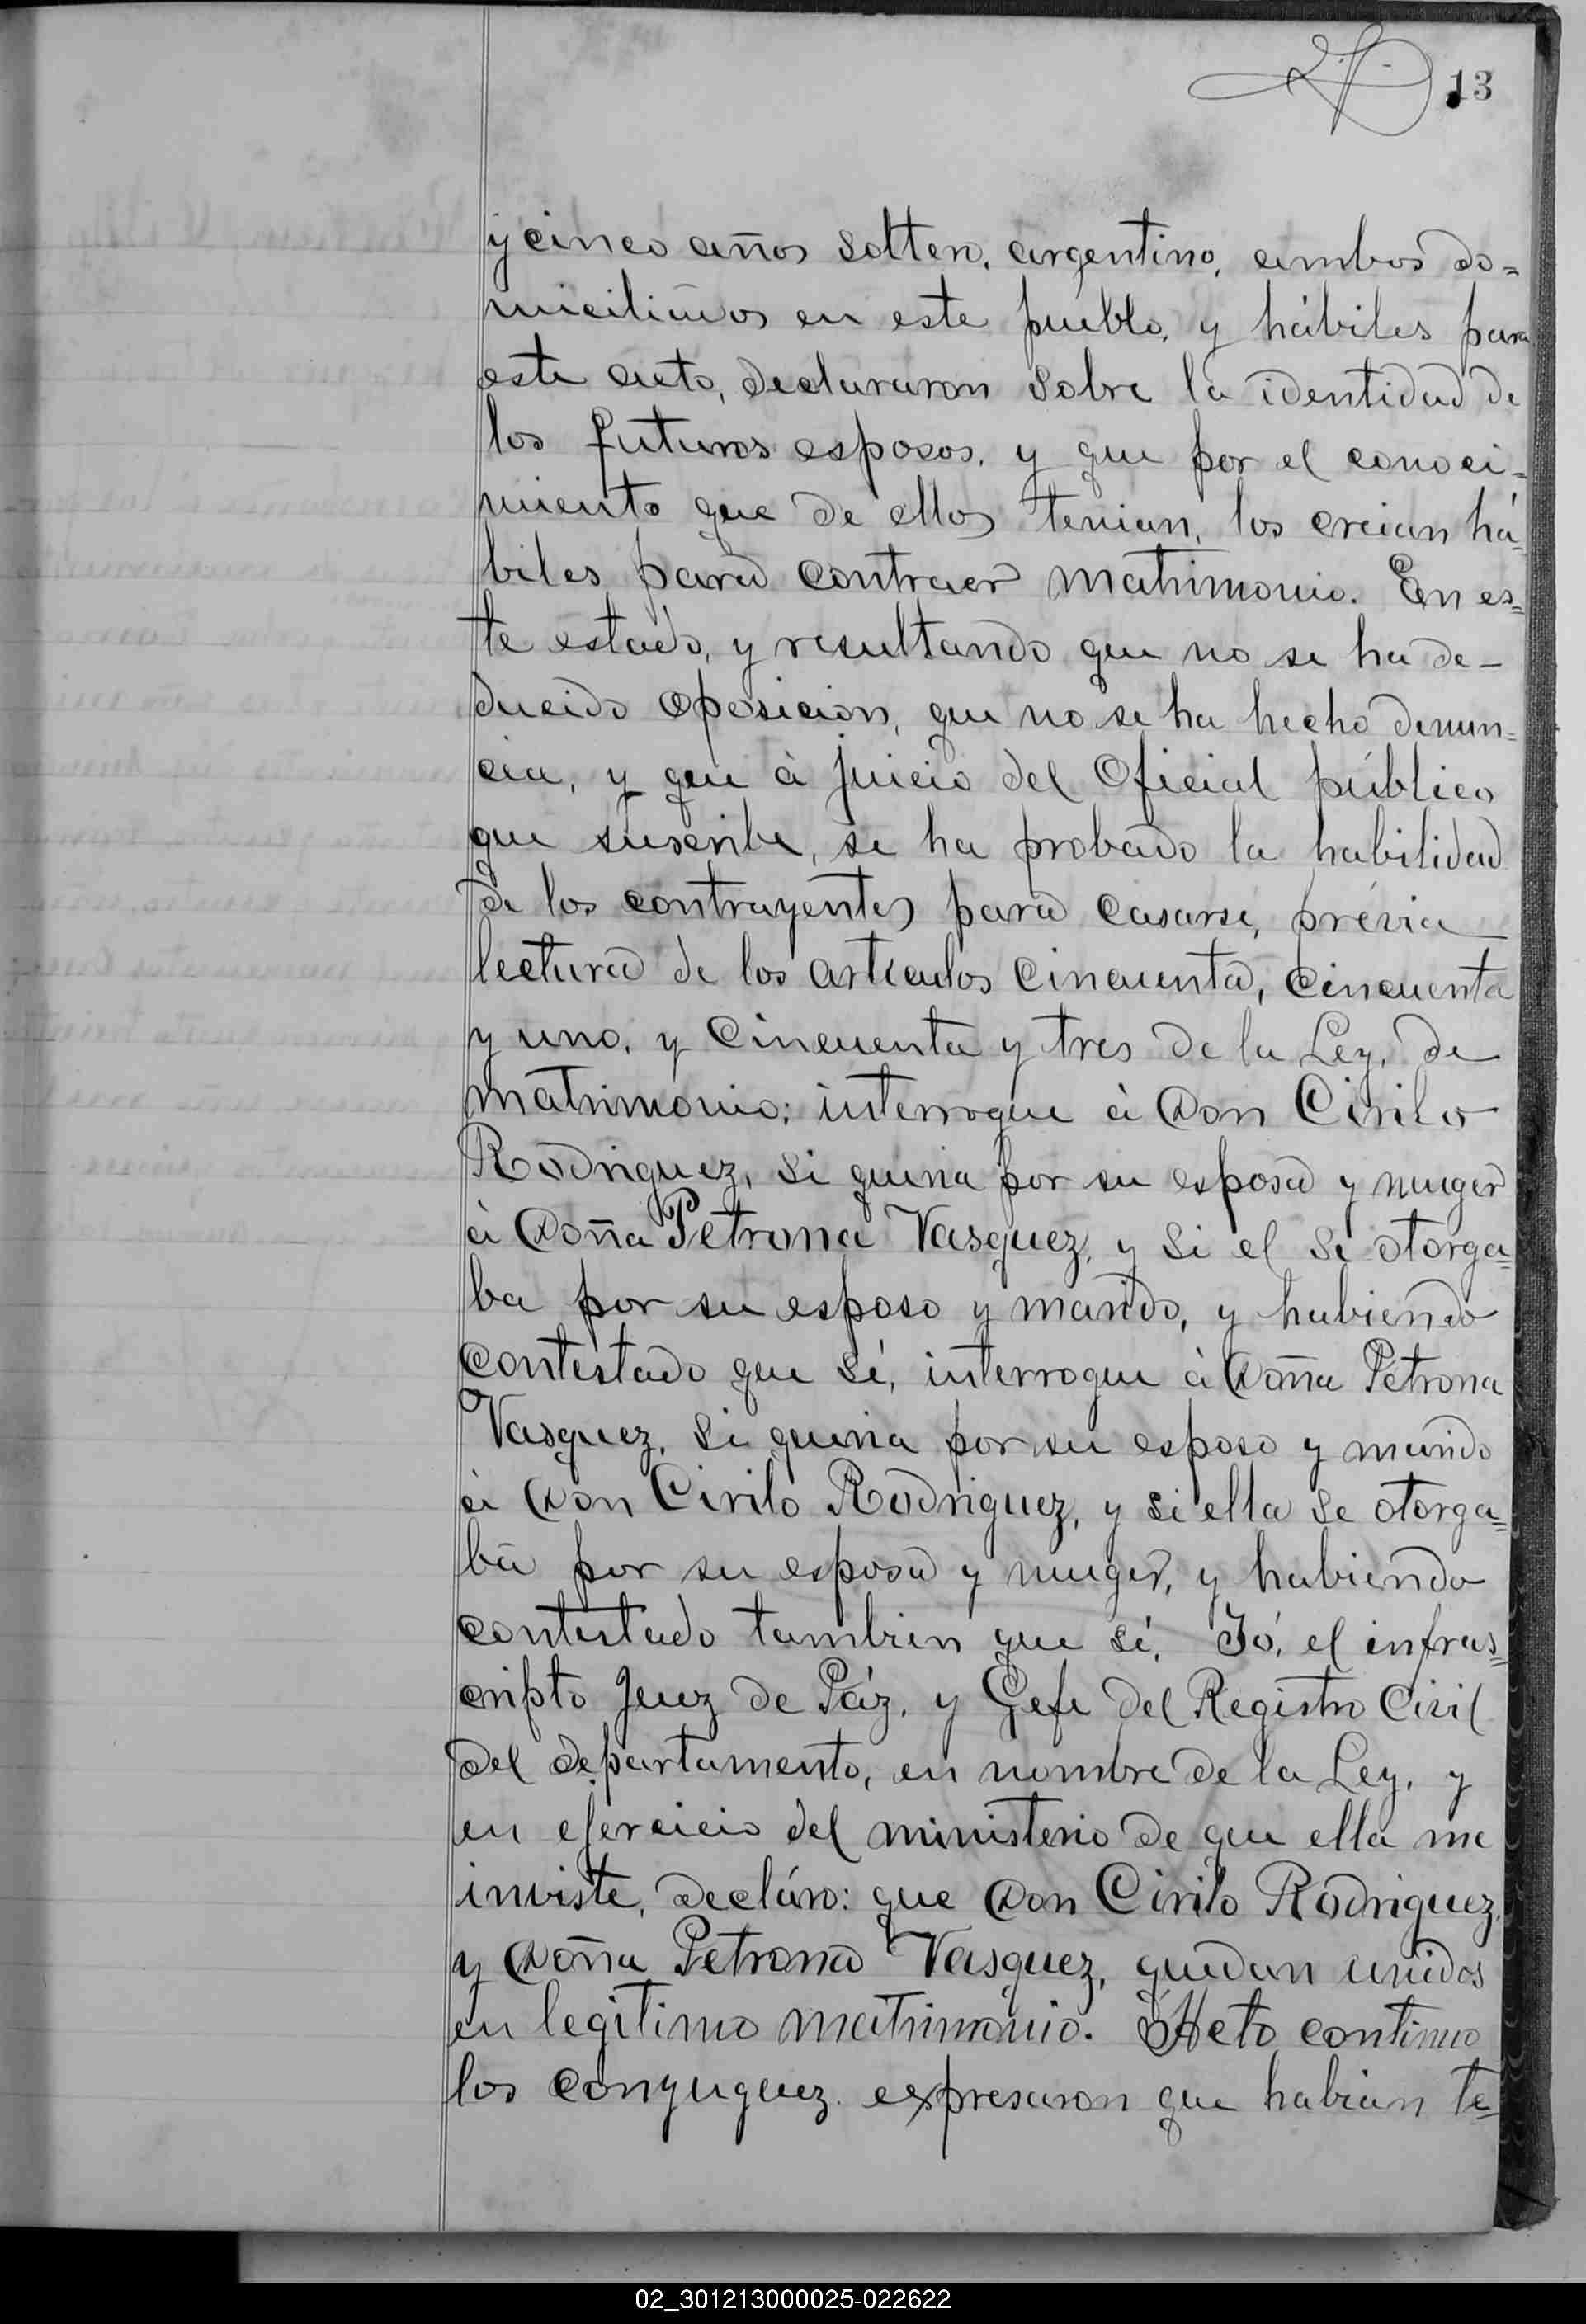 13
y cinco años soltero, argentino, ambos do=
miciliados en este pueblo, y hábiles para
este acto, declararon sobre la identidad de
los futuros esposos, y que por el conoci=
miento que de ellos tenian, los creian há=
biles para contraer matrimonio. En es=
te estado, y resultando que no se ha de-
ducido oposicion, que no se ha hecho denun=
cia, y que à juicio del Oficial público
que suscribe, se ha probado la habilidad
de los contrayentes para casarse, prévia
lectura de los articulos cincuenta, cincuenta
y uno, y cincuenta y tres de la Ley, de
matrimonio; interrogue à Don Cirilo
Rodriguez, si queria por su esposa y muger
à Doña Petrona Vasquez, y si el se otorga=
ba por su esposo y marido, y habiendo
contestado que sí, interrogue à Doña Petrona
Vasquez, si queria por su esposo y marido
à Don Cirilo Rodriguez, y si ella se otorga=
ba por su esposa y muger, y habiendo
contestado tambien que sí, Yó, el infras=
cripto Juez de Páz, y Gefe del Registro Civil
del departamento, en nombre de la Ley, y
en ejercicio del ministerio de que ella me
inviste, decláro: que Don Cirilo Rodriguez,
y Doña Petrona Vasquez, quedan unidos
en legitimo matrimonio. Acto continuo
los conyuguez expresaron que habian te=
02_301213000025-022622